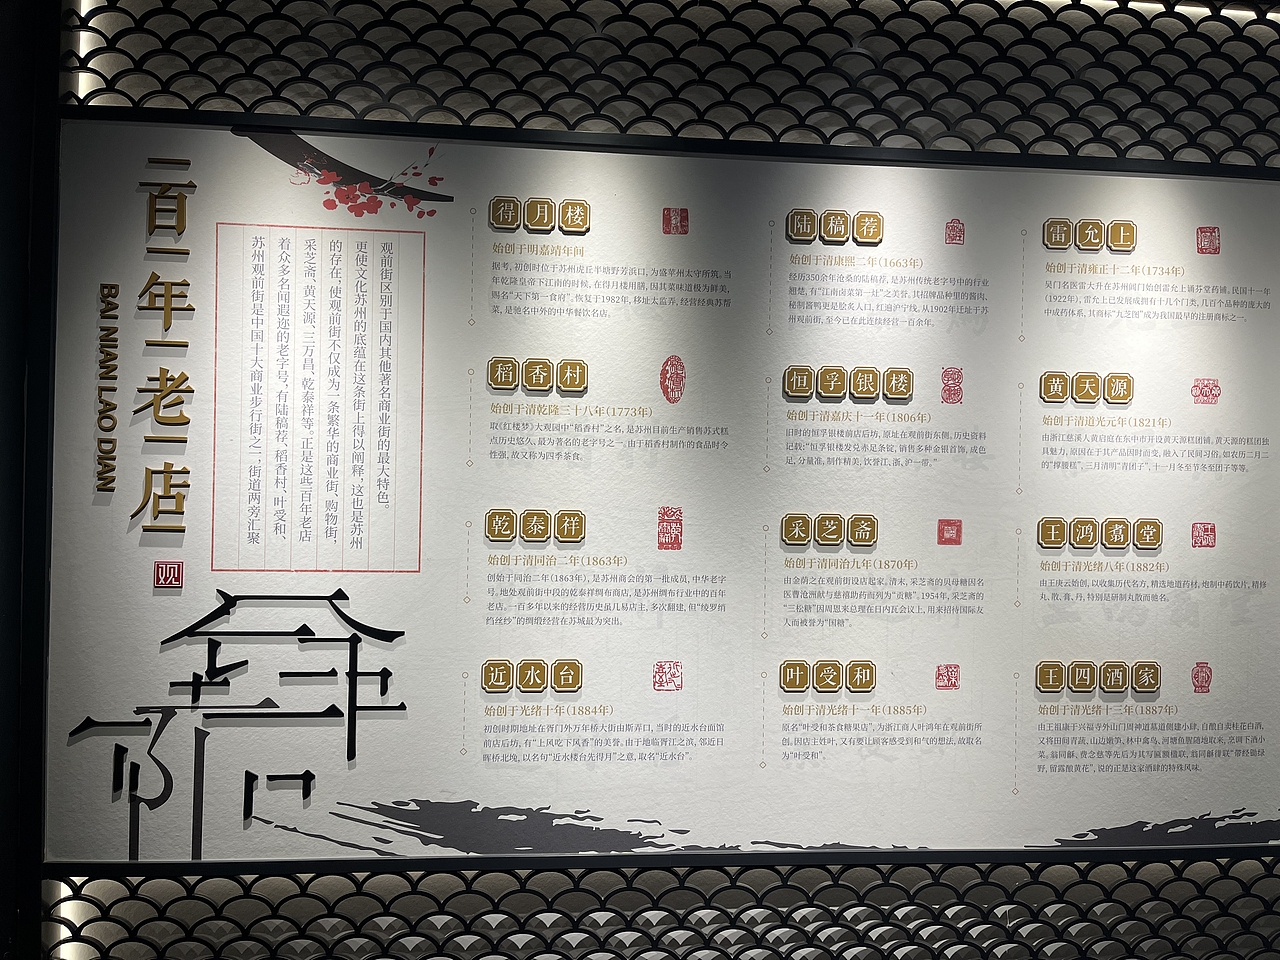 百年老店
BAI NIAN LAO DIAN
观
苏州观前街是中国十大商业步行街之一,街道两旁汇聚
着众多名闻遐迩的老字号,有陆稿荐、稻香村、叶受和、
采芝斋、黄天源、三万昌、乾泰祥等。正是这些百年老店
的存在,使观前街不仅成为一条繁华的商业街、购物街,
更使文化苏州的底蕴在这条街上得以阐释,这也是苏州
观前街区别于国内其他著名商业街的最大特色。
得月楼
始创于明嘉靖年间
据考,初创时位于苏州虎丘半塘野芳浜口,为盛苹州太守所筑。当
年乾隆皇帝下江南的时候,在得月楼用膳,因其菜味道极为鲜美,
赐名“天下第一食府”。恢复于1982年,移址太监弄,经营经典苏帮
菜,是驰名中外的中华餐饮名店。
陆稿荐
始创于清康熙二年(1663年)
经历350余年沧桑的陆稿荐,是苏州传统老字号中的行业
翘楚,有“江南卤菜第一灶”之美誉,其招牌品种里的酱肉、
秘制酱鸭更是脍炙人口,红遍沪宁线。从1902年迁址于苏
州观前街,至今已在此连续经营一百余年。
雷允上
始创于清雍正十二年(1734年)
吴门名医雷大升在苏州阊门始创雷允上诵芬堂药铺,民国十一年
(1922年),雷允上已发展成拥有十几个门类,几百个品种的庞大的
中成药体系,其商标“九芝图”成为我国最早的注册商标之一。
稻香村
始创于清乾隆三十八年(1773年)
取《红楼梦》大观园中“稻香村”之名,是苏州目前生产销售苏式糕
点历史悠久、最为著名的老字号之一。由于稻香村制作的食品时令
性强,故又称为四季茶食。
恒孚银楼
始创于清嘉庆十一年(1806年)
旧时的恒孚银楼前店后坊,原址在观前街东侧,历史资料
记载:“恒孚银楼发兑赤足条锭,销售多种金银首饰,成色
足,分量准,制作精美,饮誉江、浙、沪一带。”
黄天源
始创于清道光元年(1821年)
由浙江慈溪人黄启庭在东中市开设黄天源糕团铺。黄天源的糕团独
具魅力,原因在于其产品因时而变,融入了民间习俗。如农历二月二
的“撑腰糕”,三月清明“青团子”,十一月冬至节冬至团子等等。
乾泰祥
始创于清同治二年(1863年)
创始于同治二年(1863年),是苏州商会的第一批成员,中华老字
号,地处观前街中段的乾泰祥绸布商店,是苏州绸布行业中的百年
老店。一百多年以来的经营历史虽几易店主,多次翻建,但“绫罗绡
绉丝纱”的绸缎经营在苏城最为突出。
采芝斋
始创于清同治九年(1870年)
由金荫之在观前街设店起家。清末,采芝斋的贝母糖因名
医曹沧洲献与慈禧助药而列为“贡糖”。1954年,采芝斋的
“三松糖”因周恩来总理在日内瓦会议上,用来招待国际友
人而被誉为“国糖”。
王鸿翥堂
始创于清光绪八年(1882年)
由王庚云始创,以收集历代名方,精选地道药材,炮制中药饮片,精修
丸、散、膏、丹,特别是研制丸散而驰名。
近水台
始创于光绪十年(1884年)
初创时期地址在胥门外万年桥大街由斯弄口,当时的近水台面馆
前店后坊,有“上风吃下风香”的美誉。由于地临胥江之滨,邻近日
晖桥北堍,以名句“近水楼台先得月”之意,取名“近水台”。
叶受和
始创于清光绪十一年(1885年)
原名“叶受和茶食糖果店”,为浙江商人叶鸿年在观前街所
创。因店主姓叶,又有要让顾客感受到和气的想法,故取名
为“叶受和”。
王四酒家
始创于清光绪十三年(1887年)
由王福康于兴福寺外山门周神道墓道侧建小肆,自酿自卖桂花白酒,
又将田间青蔬、山边嫩笋、林中禽鸟、河塘鱼腥随地取来,烹调下酒小
菜。翁同龢、费念慈等先后为其写匾额楹联,翁同龢俳联“带经锄绿
野,留露酿黄花”,说的正是这家酒肆的特殊风味。